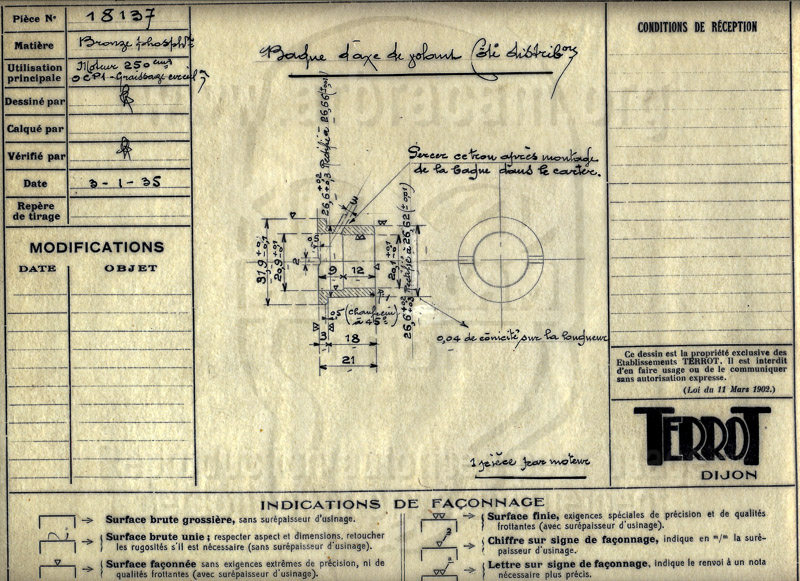 Pièce N° 18137
Matière Bronze phosph
Utilisation principale Moteur 250 cm³
Dessiné par
Calqué par
Vérifié par
Date 3-1-35
Repère de tirage
MODIFICATIONS
DATE OBJET
Bague d'axe de volant Côté distrib
Percer ce trou après montage
de la bague dans le carter.
26,6 +02 +03 Rectifié à 26,66
31,9
20,9
2
3
9 12
5 (Chanfrein
à 45°)
3 18
21
20,1
26,6 +02 +03 Rectifié à 26,62
0,04 de conicité sur la longueur
1 pièce par moteur
CONDITIONS DE RÉCEPTION
Ce dessin est la propriété exclusive des
Etablissements TERROT. Il est interdit
d'en faire usage ou de le communiquer
sans autorisation expresse.
(Loi du 11 Mars 1902.)
TERROT
DIJON
INDICATIONS DE FAÇONNAGE
Surface brute grossière, sans surépaisseur d'usinage.
Surface brute unie ; respecter aspect et dimensions, retoucher
les rugosités s'il est nécessaire (sans surépaisseur d'usinage).
Surface façonnée sans exigences extrêmes de précision, ni de
qualités frottantes (avec surépaisseur d'usinage).
Surface finie, exigences spéciales de précision et de qualités
frottantes (avec surépaisseur d'usinage).
3
Chiffre sur signe de façonnage, indique en m/m la suré-
paisseur d'usinage.
Lettre sur signe de façonnage, indique le renvoi à un nota
nécessaire plus précis.